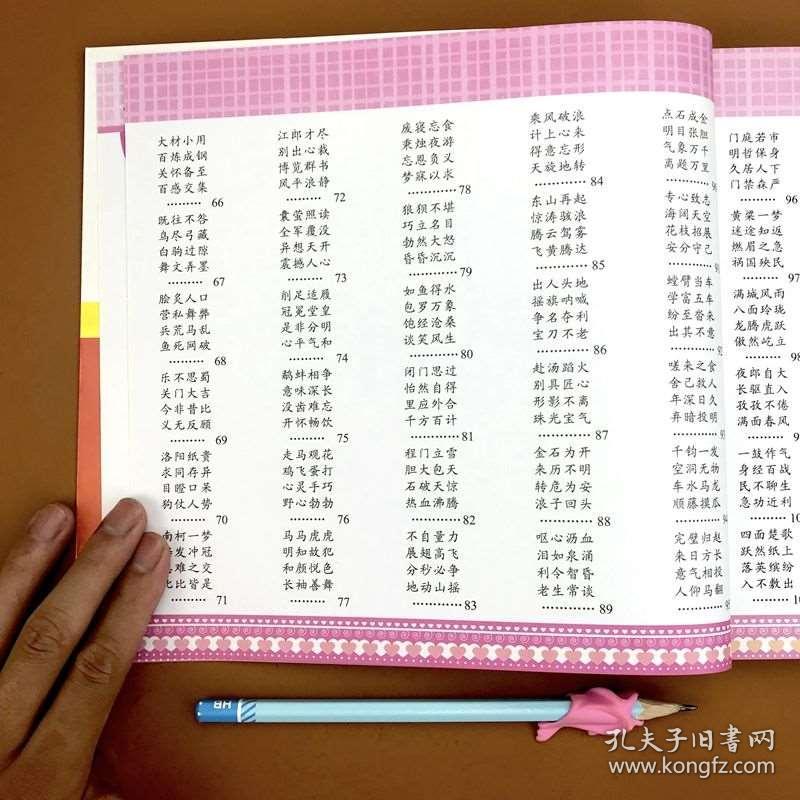 大材小用
百炼成钢
关怀备至
百感交集
……… 66
既往不咎
鸟尽弓藏
白驹过隙
舞文弄墨
……… 67
脍炙人口
营私舞弊
兵荒马乱
鱼死网破
……… 68
乐不思蜀
关门大吉
今非昔比
义无反顾
……… 69
洛阳纸贵
求同存异
目瞪口呆
狗仗人势
……… 70
南柯一梦
发冲冠
难之交
比皆是
……… 71
江郎才尽
别出心裁
博览群书
风平浪静
……… 72
囊萤照读
全军覆没
异想天开
震撼人心
……… 73
削足适履
冠冕堂皇
是非分明
心平气和
……… 74
鹬蚌相争
意味深长
没齿难忘
开怀畅饮
……… 75
走马观花
鸡飞蛋打
心灵手巧
野心勃勃
……… 76
马马虎虎
明知故犯
和颜悦色
长袖善舞
……… 77
废寝忘食
秉烛夜游
忘恩负义
梦寐以求
……… 78
狼狈不堪
巧立名目
勃然大怒
昏昏沉沉
……… 79
如鱼得水
包罗万象
饱经沧桑
谈笑风生
……… 80
闭门思过
怡然自得
里应外合
千方百计
……… 81
程门立雪
胆大包天
石破天惊
热血沸腾
……… 82
不自量力
展翅高飞
分秒必争
地动山摇
……… 83
乘风破浪
计上心来
得意忘形
天旋地转
……… 84
东山再起
惊涛骇浪
腾云驾雾
飞黄腾达
……… 85
出人头地
摇旗呐喊
争名夺利
宝刀不老
……… 86
赴汤蹈火
别具匠心
形影不离
珠光宝气
……… 87
金石为开
来历不明
转危为安
浪子回头
……… 88
呕心沥血
泪如泉涌
利令智昏
老生常谈
……… 89
点石成金
明目张胆
气象万千
离题万里
专心致志
海阔天空
花枝招展
安分守己
螳臂当车
学富五车
纷至沓来
出其不意
嗟来之食
舍己救人
年深日久
弃暗投明
千钧一发
空洞无物
车水马龙
顺藤摸瓜
完璧归赵
来日方长
意气相投
人仰马翻
门庭若市
明哲保身
久居人下
门禁森严
……… 96
黄粱一梦
迷途知返
燃眉之急
祸国殃民
……… 97
满城风雨
八面玲珑
龙腾虎跃
傲然屹立
夜郎自大
长驱直入
孜孜不倦
满面春风
一鼓作气
身经百战
民不聊生
急功近利
四面楚歌
跃然纸上
落英缤纷
入不敷出
HB
孔夫子旧书网
www.kongfz.com